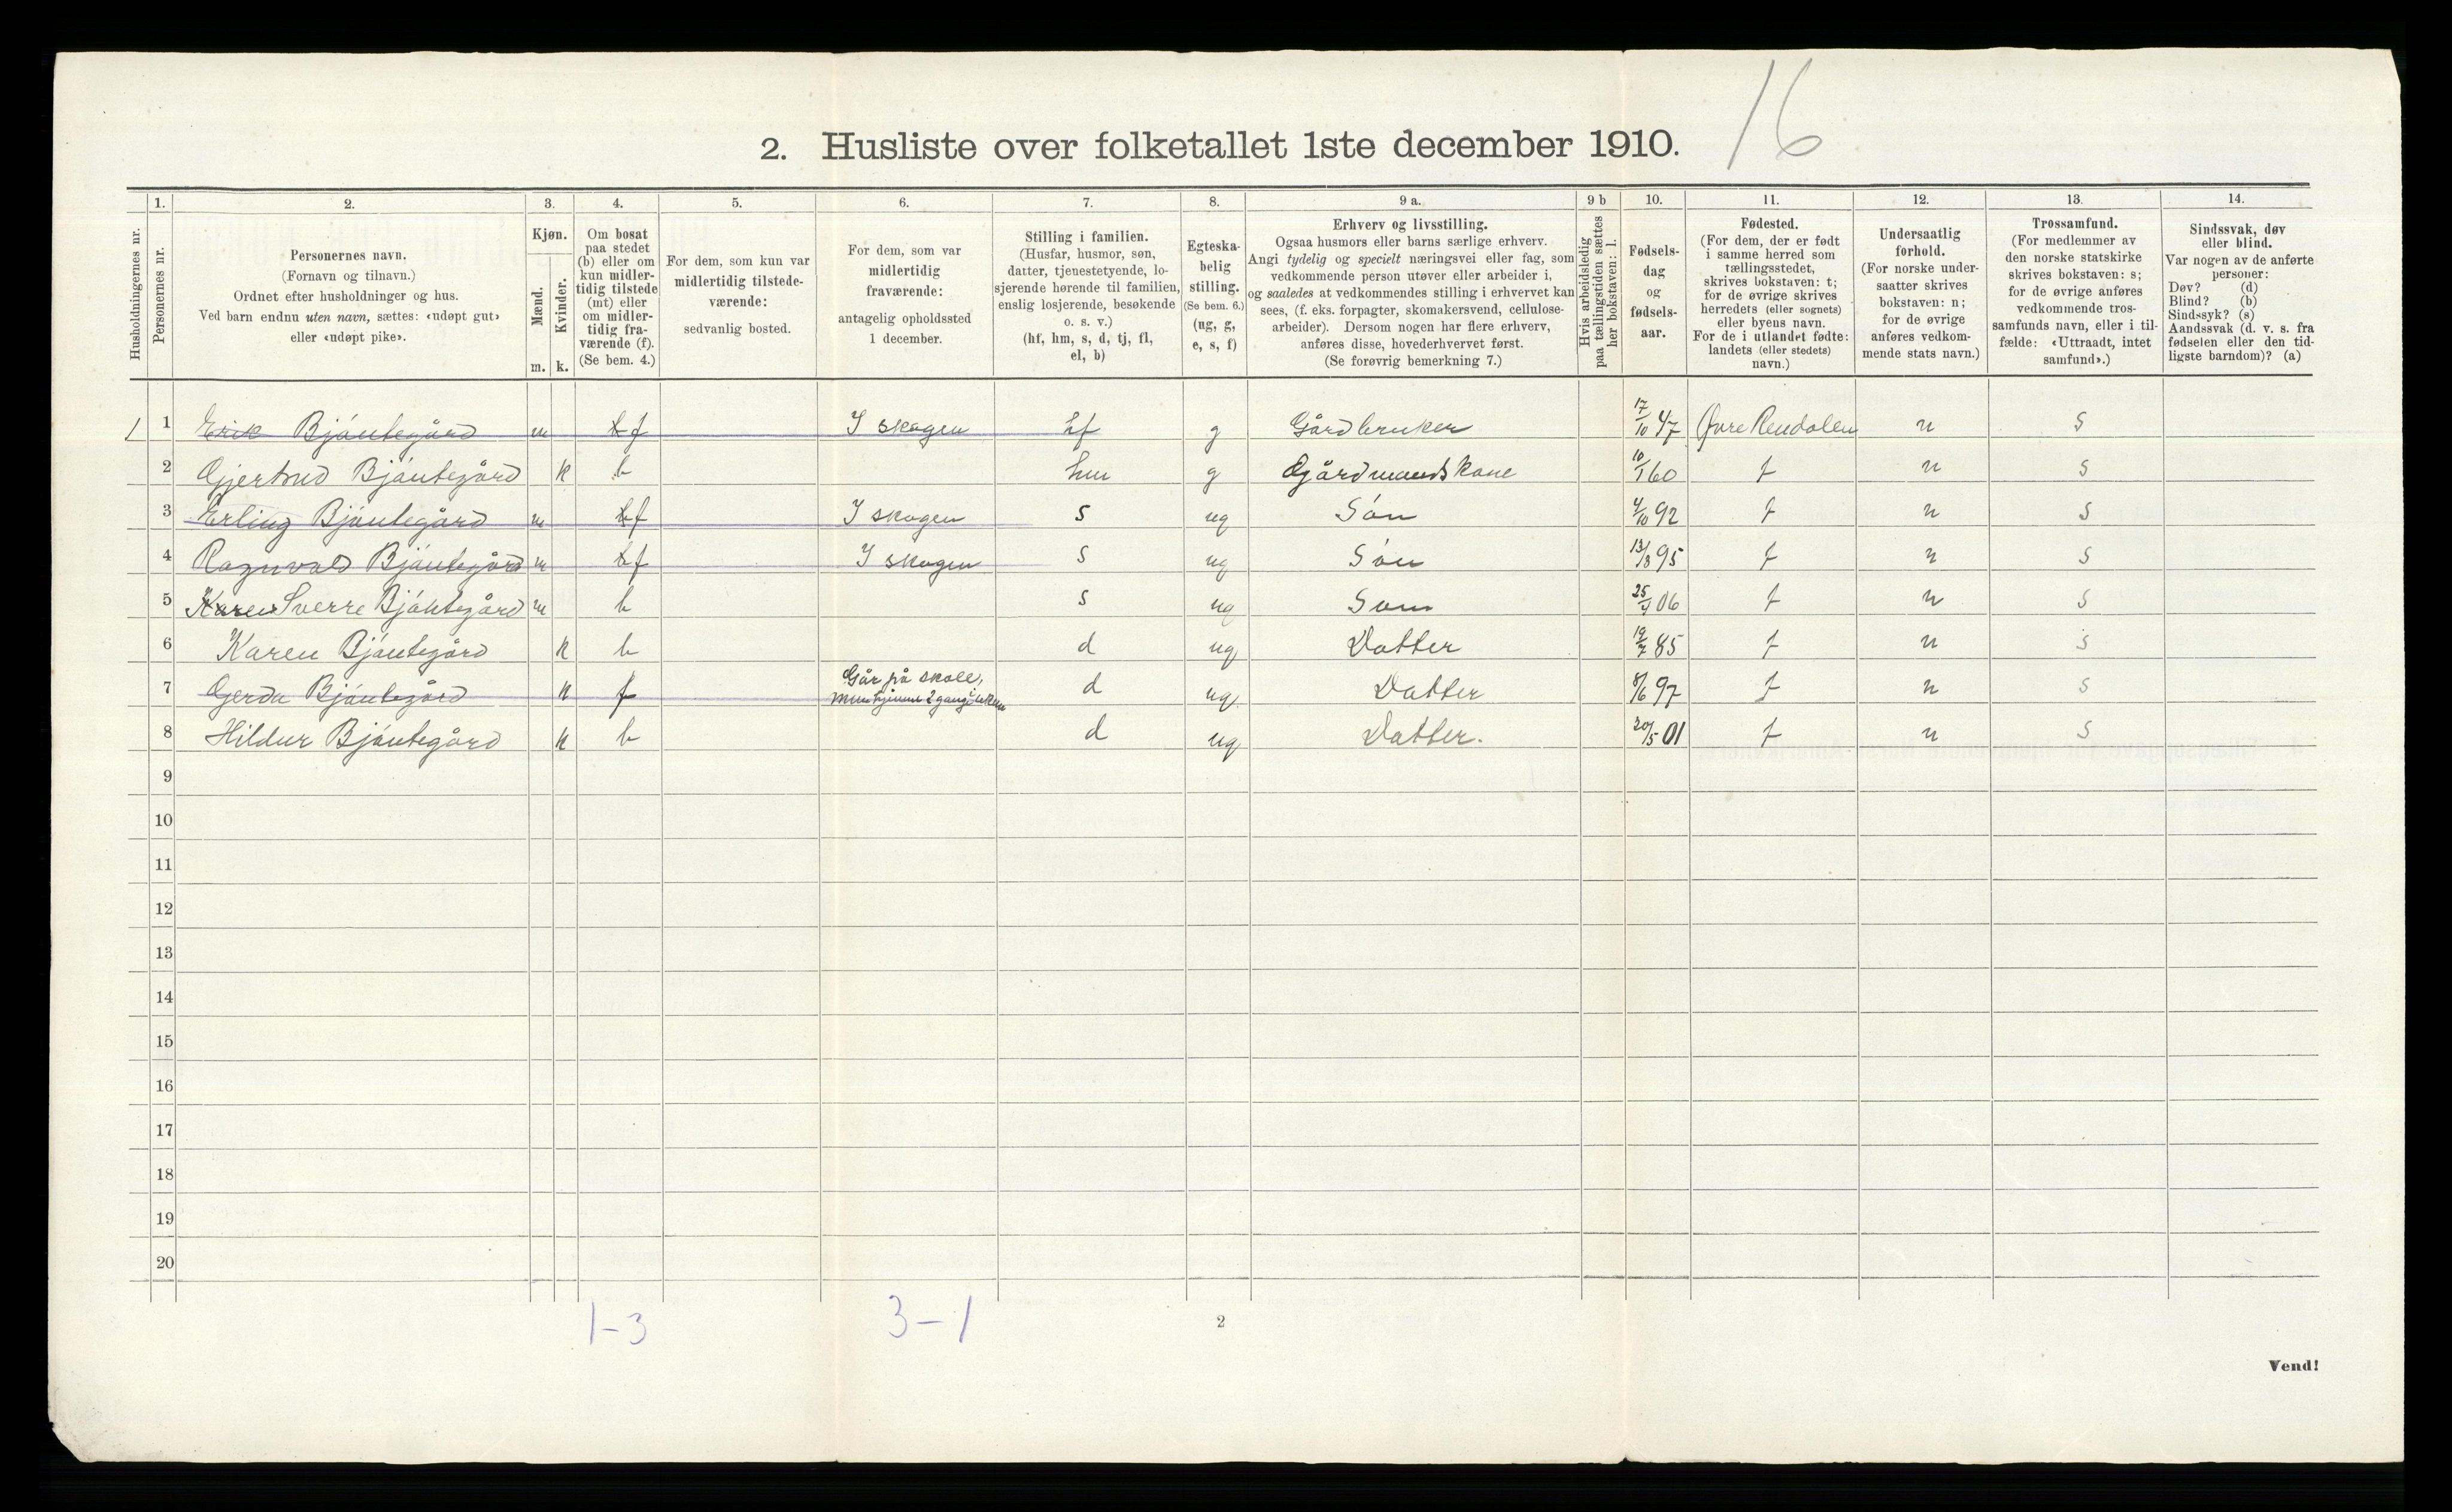 16
2. Husliste over folketallet 1ste december 1910.
Husholdningernes nr.
1.
Personernes nr.
2.
Personernes navn.
(Fornavn og tilnavn.)
Ordnet efter husholdninger og hus.
Ved barn endnu uten navn, sættes: «udøpt gut»
eller «udøpt pike».
3.
Kjøn.
Mænd.
Kvinder.
m. k.
4.
Om bosat
paa stedet
(b) eller om
kun midler-
tidig tilstede
(mt) eller
om midler-
tidig fra-
værende (f).
(Se bem. 4.)
5.
For dem, som kun var
midlertidig tilstede-
værende:
sedvanlig bosted.
6.
For dem, som var
midlertidig
fraværende:
antagelig opholdssted
1 december.
7.
Stilling i familien.
(Husfar, husmor, søn,
datter, tjenestetyende, lo-
sjerende hørende til familien,
enslig losjerende, besøkende
o. s. v.)
(hf, hm, s, d, tj, fl,
el, b)
8.
Egteska-
belig
stilling.
(Se bem. 6.)
(ug, g,
e, s, f)
9 a.
Erhverv og livsstilling.
Ogsaa husmors eller barns særlige erhverv.
Angi tydelig og specielt næringsvei eller fag, som
vedkommende person utøver eller arbeider i,
og saaledes at vedkommendes stilling i erhvervet kan
sees, (f. eks. forpagter, skomakersvend, cellulose-
arbeider). Dersom nogen har flere erhverv,
anføres disse, hovederhvervet først.
(Se forøvrig bemerkning 7.)
9 b
Hvis arbeidsledig
paa tællingstiden sættes
her bokstaven: l.
10.
Fødsels-
dag
og
fødsels-
aar.
11.
Fødested.
(For dem, der er født
i samme herred som
tællingsstedet,
skrives bokstaven: t;
for de øvrige skrives
herredets (eller sognets)
eller byens navn.
For de i utlandet fødte:
landets (eller stedets)
navn.)
12.
Undersaatlig
forhold.
(For norske under-
saatter skrives
bokstaven: n;
for de øvrige
anføres vedkom-
mende stats navn.)
13.
Trossamfund.
(For medlemmer av
den norske statskirke
skrives bokstaven: s;
for de øvrige anføres
vedkommende tros-
samfunds navn, eller i til-
fælde: «Uttraadt, intet
samfund».)
14.
Sindssvak, døv
eller blind.
Var nogen av de anførte
personer:
Døv? (d)
Blind? (b)
Sindssyk? (s)
Aandssvak (d. v. s. fra
fødselen eller den tid-
ligste barndom)? (a)
1 1 Erik Bjøntegård m b f I skogen hf g Gårdbruker 17/10 47 Øvre Rendalen n s
2 Gjertrud Bjøntegård k b hm g Gårdmandskone 10/1 60 t n s
3 Erling Bjøntegård m b f I skogen s ug Søn 4/10 92 t n s
4 Ragnvald Bjøntegård m b f I skogen s ug Søn 13/8 95 t n s
5 Karen Sverre Bjøntegård m b s ug Søn 25/4 06 t n s
6 Karen Bjøntegård k b d ug Datter 19/7 85 t n s
7 Gerda Bjøntegård k f Går på skole, men hjemme 2 gang i uken d ug Datter 8/6 97 t n s
8 Hildur Bjøntegård k b d ug Datter. 20/5 01 t n s
9
10
11
12
13
14
15
16
17
18
19
20
1-3 3-1
2
Vend!